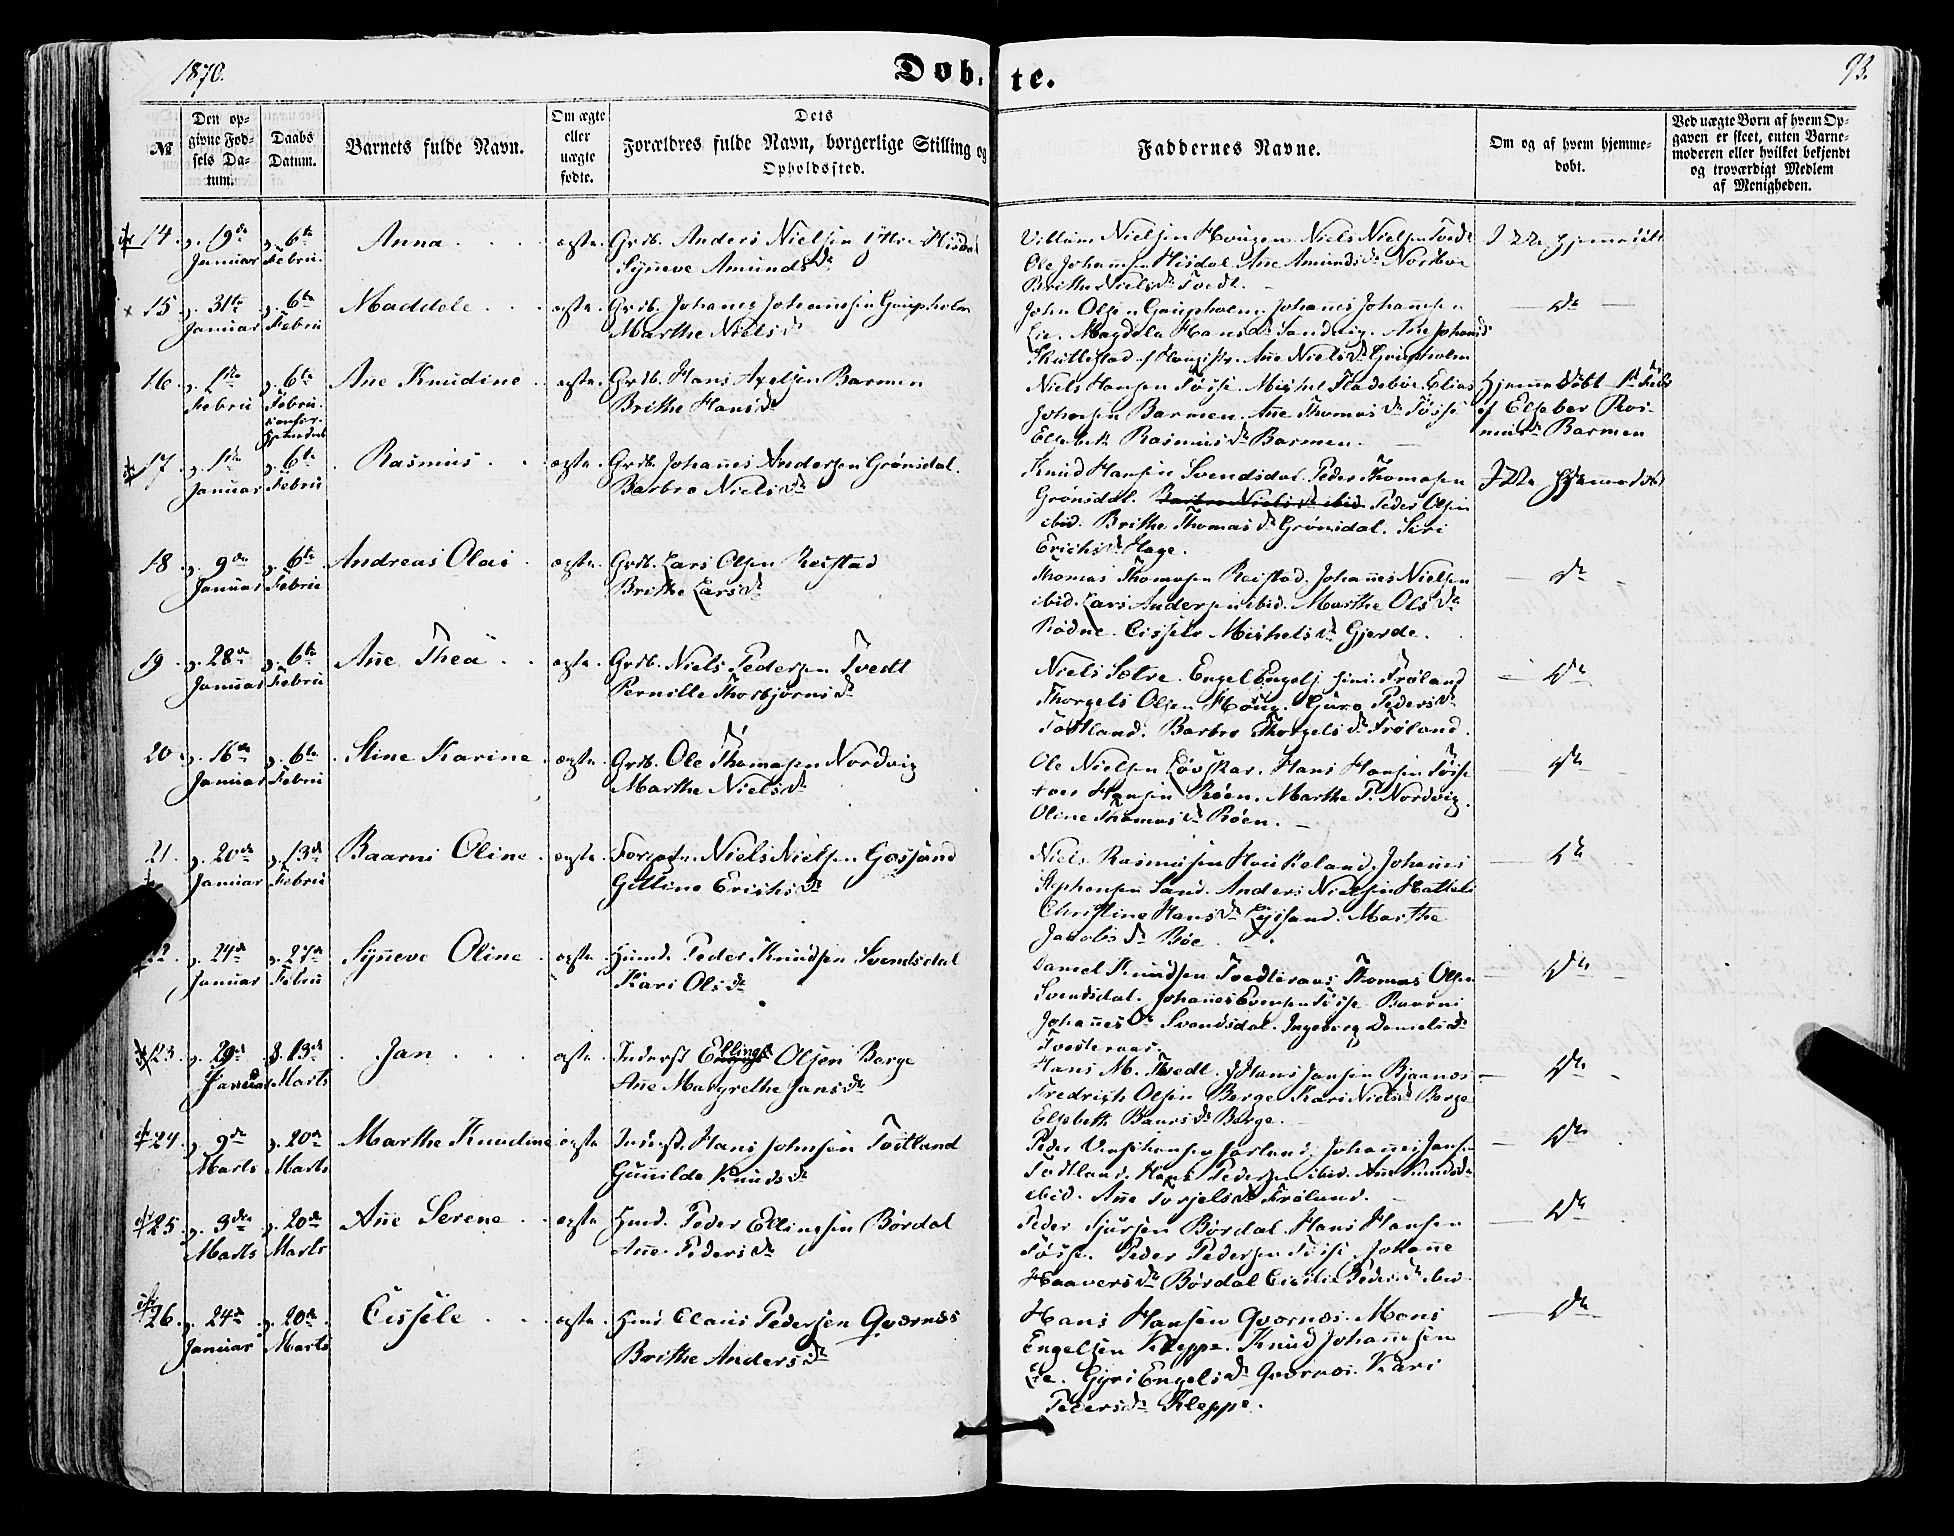 1870.
Døb-te.
93.
№
Den op-
givne Fød-
sels Da-
tum.
Daabs
Datum.
Barnets fulde Navn.
Om ægte
eller
uægte
fødte.
Dets
Forældres fulde Navn, borgerlige Stilling og
Opholdssted.
Faddernes Navne.
Om og af hvem hjemme-
døbt.
Ved uægte Børn af hvem Op-
gaven er skeet, enten Barne-
moderen eller hvilket bekjendt
og troværdigt Medlem
af Menigheden.
14. d. 19de Januar d. 6te Febru. Anna ægte. Grdb. Anders Nielsen Hisdal
Synneve Amundsdr
Nielsen Hougen. Niels Nielsen Tvedt
Ole Johannesen Hisdal. Ane Amundsdr Nordbøe
Brithe Nielsdr Tvedt.
Ikke hjemmedøbt
15 d. 31te Januar d. 6te Febru Maddele ægte. Grdb. Johanes Johannesen Gaupholm
Marthe Nielsdr
John Olsen Gaupholm. Johanes Johannesen
Lie. Magdela Hansdr Sandvig. Ane Johansdr
Ane Nielsdr Gaupholm
— Do —
16 d. 1ste Febru d. 6te Febru. Ane Knudine ægte. Grdb. Hans Axelsen Barmen
Brithe Hansdr
Niels Hansen Tøsse. Michel Elias
Johnsen Barmen. Ane Thomasdr Tøsse
Elsebeth Rasmusdr Barmen.
Hjemmedøbt 1ste Febr
af Elseber Ras-
musdr Barmen
17 d. 1ste Januar d. 6te Febru Rasmus ægte. Grdb. Johanes Andersen Grønsdal.
Barbro Nielsdr
Knud Hansen Svendsdal. Peder Thomasen
Grønsdal. Barbro Nielsdr ibid. Peder Olsen
ibid. Brithe Thomasdr Grønsdal. Siri
Erichsdr Hage.
Ikke Hjemmedøbt
18 d. 9de Januar d. 6te Febru Andreas Olai ægte. Grdb. Lars Olsen Reistad
Brithe Larsdr
Thomas Thomasen Reistad. Johanes Nielsen
ibid. Lars Andersen ibid. Marthe Olsdr
Rødne. Cissele Michelsdr Gjerde.
— Do —
19 d. 28de Januar d. 6te Febru Ane Thea ægte Grdb. Niels Pedersen Tvedt
Pernille Thorbjørnsdr
Niels Sætre. Engel Frøland
Thorgels Olsen Houg. Guro Pedersdr
Totland. Barbro Thorgelsdr Frøland.
— Do
20 d. 16de Januar d. 6te Febru Stine Karine ægte. Grdb. Ole Thomasen Nordvig
Marthe Nielsdr
Ole Nielsen Løvskar. Hans Hansen Tøsse
Hansen Røen. Marthe P. Nordvig.
Oline Thomasdr Røen.
— Do
21. d. 20de Januar d. 13de Febru Baarni Oline ægte. Niels Nielsen Gøssand
Gitline Erichsdr
Niels Rasmusen Johanes
Stephensen Sand. Anders Nielsen
Christine Hansdr Marthe
Jacobsdr Bøe.
— Do
22 d. 24de Januar d. 27de Febru Synneve Oline ægte Huusmd. Peder Knudsen Svendsdal
Kari Olsdr
Daniel Knudsen Tvedteraas Thomas Olsen
Svendsdal. Johanes Tøsse Baarni
Johannesdr Svendsdal. Ingeborg Danielsdr
Tvedteraas.
— Do —
23. d. 29de Januar d. 13de Marts Jan ægte Inderst Ellings Olsen Berge
Ane Margrethe Jansdr
Hans M. Tvedt. Hans Jansen Bjaanes
Fredrich Olsen Berge Kari Nielsdr Berge
Elsebeth Berge.
— Do —
24. d. 9de Marts d. 20de Marts Marthe Knudine ægte Inderst. Hans Johnsen Totland
Gunnilde Knudsdr
Peder Johannes Jansen
Totland. Hans Pedersen ibid. Ane Knudsdr
ibid. Ane Torjelsdr Frøland.
— Do
25. d. 3die Marts d. 20de Marts Ane Serene ægte Hmd. Peder Ellingsen Børdal
Anne Pedersdr
Peder Sjursen Børdal. Hans Hansen
Tøsse. Peder Pedersen Tøsse. Johane
Haaversdr Børdal Cicilie Pedersdr ibid.
— Do
26. d. 24de Januar d. 20de Marts Cissele ægte. Hmd Claus Pedersen Qværnæs
Brithe Andersdr
Hans Hansen Qværnæs. Mons
Engelsen Kleppe. Knud Johannesen
Lie. Gyri Engelsdr Qværnæs. Kari
Pedersdr Kleppe.
— Do —